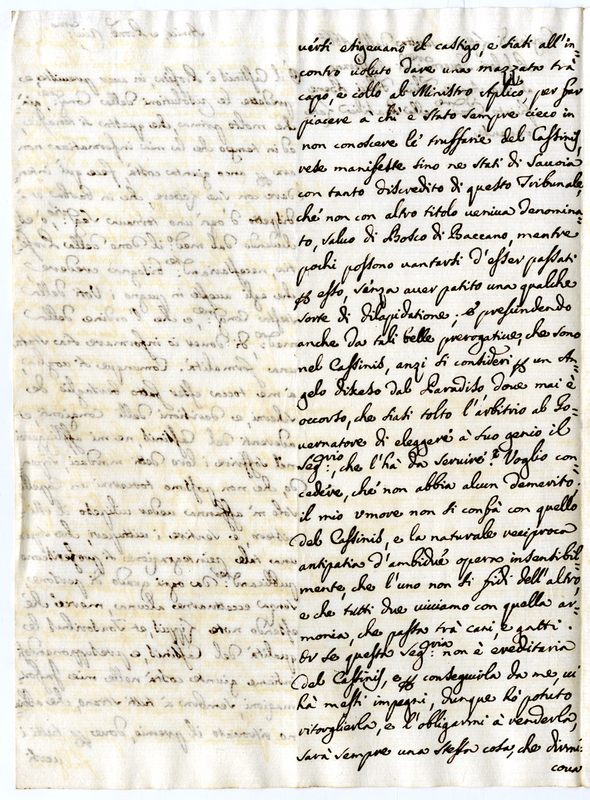 verti esigevano il castigo, e siasi all'in=
contro voluto dare una mazzata trà
capo, e collo al Ministro Aplico, per far
piacere à chi è stato sempre cieco in
non conoscere le truffarie del Cassinis,
rese manifeste sino ne stati di Savoia
con tanto discredito di questo Tribunale,
che non con altro titolo veniva denomina=
to, salvo di Bosco di Baccano, mentre
pochi possono vantarsi d'esser passati
per esso, senza aver patito una qualche
sorte di dilapidatione; e prescindendo
anche da tali belle prerogative, che sono
nel Cassinis, anzi si consideri per un An=
gelo disceso dal Paradiso, dove mai è
occorso, che siasi tolto l'arbitrio al Go=
vernatore di eleggere à suo genio il
Seg:rio, che l'hà da servire? Voglio con=
cedere, che non abbia alcun demerito;
il mio umore non si confà con quello
del Cassinis, e la naturale reciproca
antipatia d'ambidue opera insensibil=
mente, che l'uno non si fidi dell'altro,
e che tutti due viviamo con quella ar=
monia, che passa trà cani, e gatti.
Or se questa Seg:ria non è ereditaria
del Cassinis, e per conseguirla da me, vi
hà messi impegni, dunque hò potuto
ritorglierla, e l'obligarmi à renderla,
sarà sempre una stessa cosa, che dirmi: